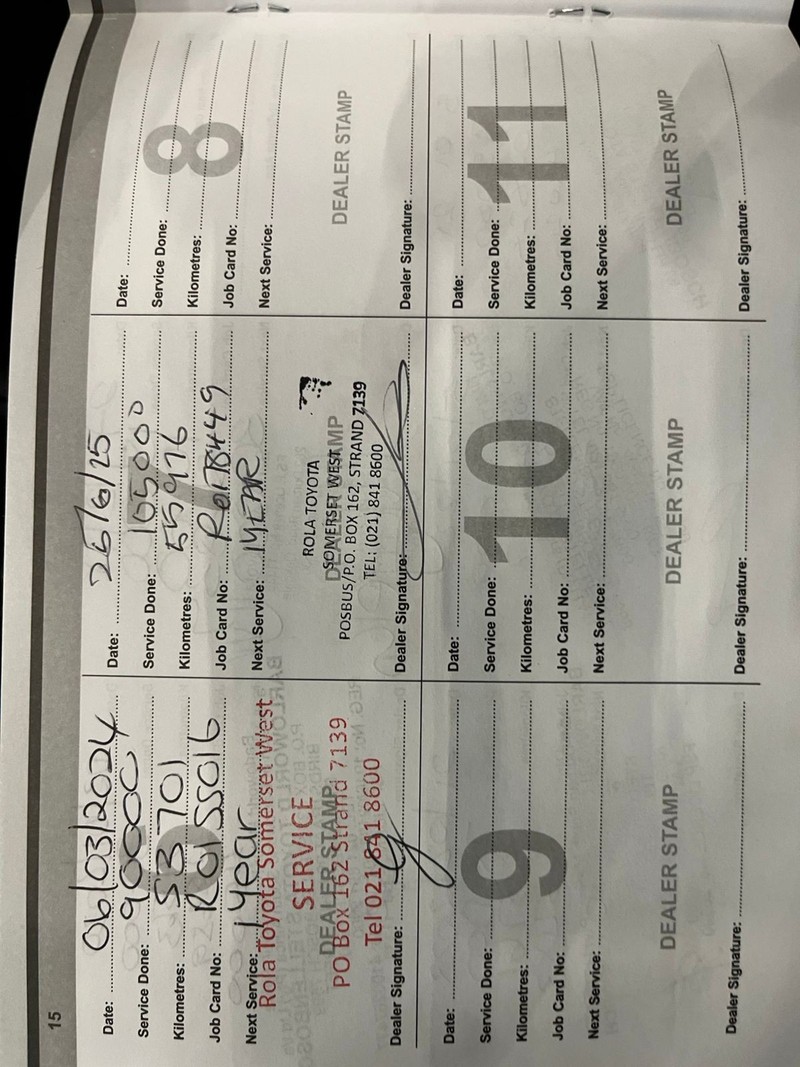 15
6
Date: 06/03/2024
Service Done: 90000
Kilometres: 53701
Job Card No: R01SS016
Next Service: 1 year
Rola Toyota Somerset West
SERVICE
DEALER STAMP
PO Box 162 Strand 7139
Tel 021 841 8600
Dealer Signature:
7
Date: 26/6/25
Service Done: 105000
Kilometres: 55976
Job Card No:
Next Service: 1YEAR
ROLA TOYOTA
SOMERSET WEST
DEALER STAMP
POSBUS/P.O. BOX 162, STRAND 7139
TEL: (021) 841 8600
Dealer Signature:
8
Date:
Service Done:
Kilometres:
Job Card No:
Next Service:
DEALER STAMP
Dealer Signature:
9
Date:
Service Done:
Kilometres:
Job Card No:
Next Service:
DEALER STAMP
Dealer Signature:
10
Date:
Service Done:
Kilometres:
Job Card No:
Next Service:
DEALER STAMP
Dealer Signature:
11
Date:
Service Done:
Kilometres:
Job Card No:
Next Service:
DEALER STAMP
Dealer Signature: